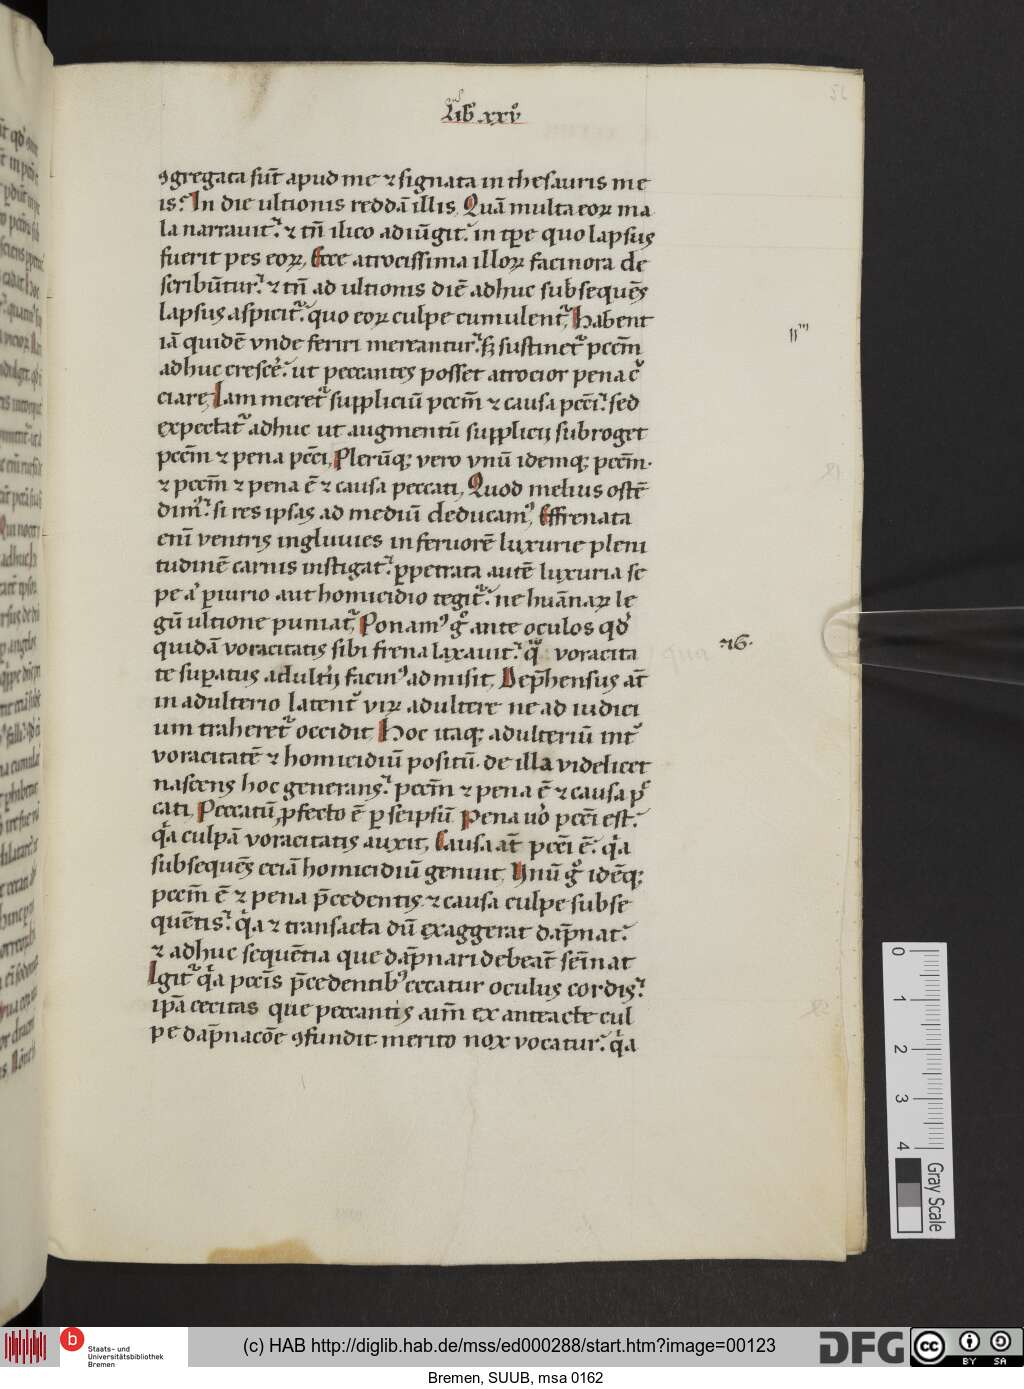 Lib xxv
52
ꝯgregata sūt apud me ⁊ signata in thesauris me
is? In die ultionis reddā illis. Quā multa eoꝝ ma
la narrauit᷒. ⁊ tn̄ ilico adiūgit᷒. in tp̄e quo lapsus
fuerit pes eoꝝ. Ecce atrocissima illoꝝ facinora de
scribūtur᷒. ⁊ tn̄ ad ultionis diē adhuc subsequēs
lapsus aspicit᷒. quo eoꝝ culpe cumulent᷒. Habent
iā quidē vnde feriri mereantur᷒. sꝫ sustinet᷒ pccm̄
adhuc crescē᷒. ut peccantes posset atrocior pena c᷒
ciare. Iam meret᷒ suppliciū pccm̄ ⁊ causa pcc̄i᷒. sed
expectat᷒ adhuc ut augmentū supplicij subroget
pccm̄ ⁊ pena pcc̄i. Plerūqꝫ vero vnū idemqꝫ pccm̄.
⁊ pccm̄ ⁊ pena ē ⁊ causa peccati. Quod melius ostē
dim᷒᷒. si res ipsas ad mediū deducam᷒. Effrenata
enī ventris ingluuies in feruorē luxurie pleni
tudinē carnis instigat᷒. ꝑpetrata autē luxuria se
pe a᷒ ꝑiurio aut homicidio tegit᷒᷒. ne huānaꝝ le
gū ultione puniat᷒. Ponam᷒ gͦ ante oculos qd᷒
quidā voracitatis sibi frena laxauit᷒. qͣ voracita
te suꝑatus adulterij facin᷒ admisit. Dep̄hensus at̄
in adulterio latent᷒ viꝝ adultere ne ad iudici
um traheret᷒ occidit. Hoc itaqꝫ adulteriū int᷒
voracitatē ⁊ homicidiū positū. de illa videlicet
nascens hoc generans᷒. pccm̄ ⁊ pena ē ⁊ causa p᷒
cati. Peccatū ꝓfecto ē ꝑ seipsū Pena uͦ pcc̄i est᷒.
qͣ culpā voracitatis auxit. Causa at̄ pcc̄i ē᷒. qͣ
subsequēs eciā homicidiū genuit. Vnū gͦ idēqꝫ
pccm̄ ē ⁊ pena p̄cedentis. ⁊ causa culpe subse
quētis᷒. qͣ ⁊ transacta dū exaggerat dāpnat᷒.
⁊ adhuc sequētia que dāpnari debeāt sēinat
Igit᷒ qͣ pccīs p̄cedentib᷒ cecatur oculus cordis᷒.
ip̄a cecitas que peccantis aīm ex anteacte cul
pe dāpnacōe ꝯfundit merito nox vocatur᷒. qͣ
⁊6.
0
1
2
3
4
Gray Scale
b
Staats- und
Universitätsbibliothek
Bremen
(c) HAB http://diglib.hab.de/mss/ed000288/start.htm?image=00123
DFG
cc
BY SA
Bremen, SUUB, msa 0162